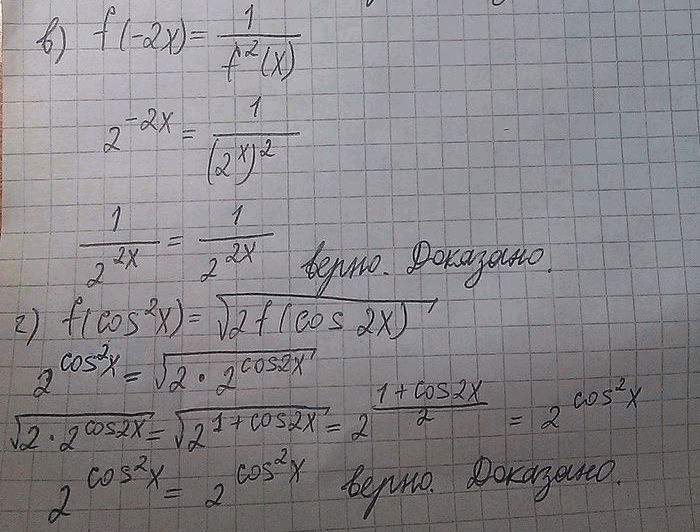 в) f(-2x) = 1/f²(x)
2^(-2x) = 1/(2^x)²
1/2^(2x) = 1/2^(2x) верно. Доказано.
г) f(cos²x) = √(2f(cos 2x))
2^(cos²x) = √(2·2^(cos2x))
√(2·2^(cos2x)) = √(2^(1+cos2x)) = 2^((1+cos2x)/2) = 2^(cos²x)
2^(cos²x) = 2^(cos²x) верно. Доказано.